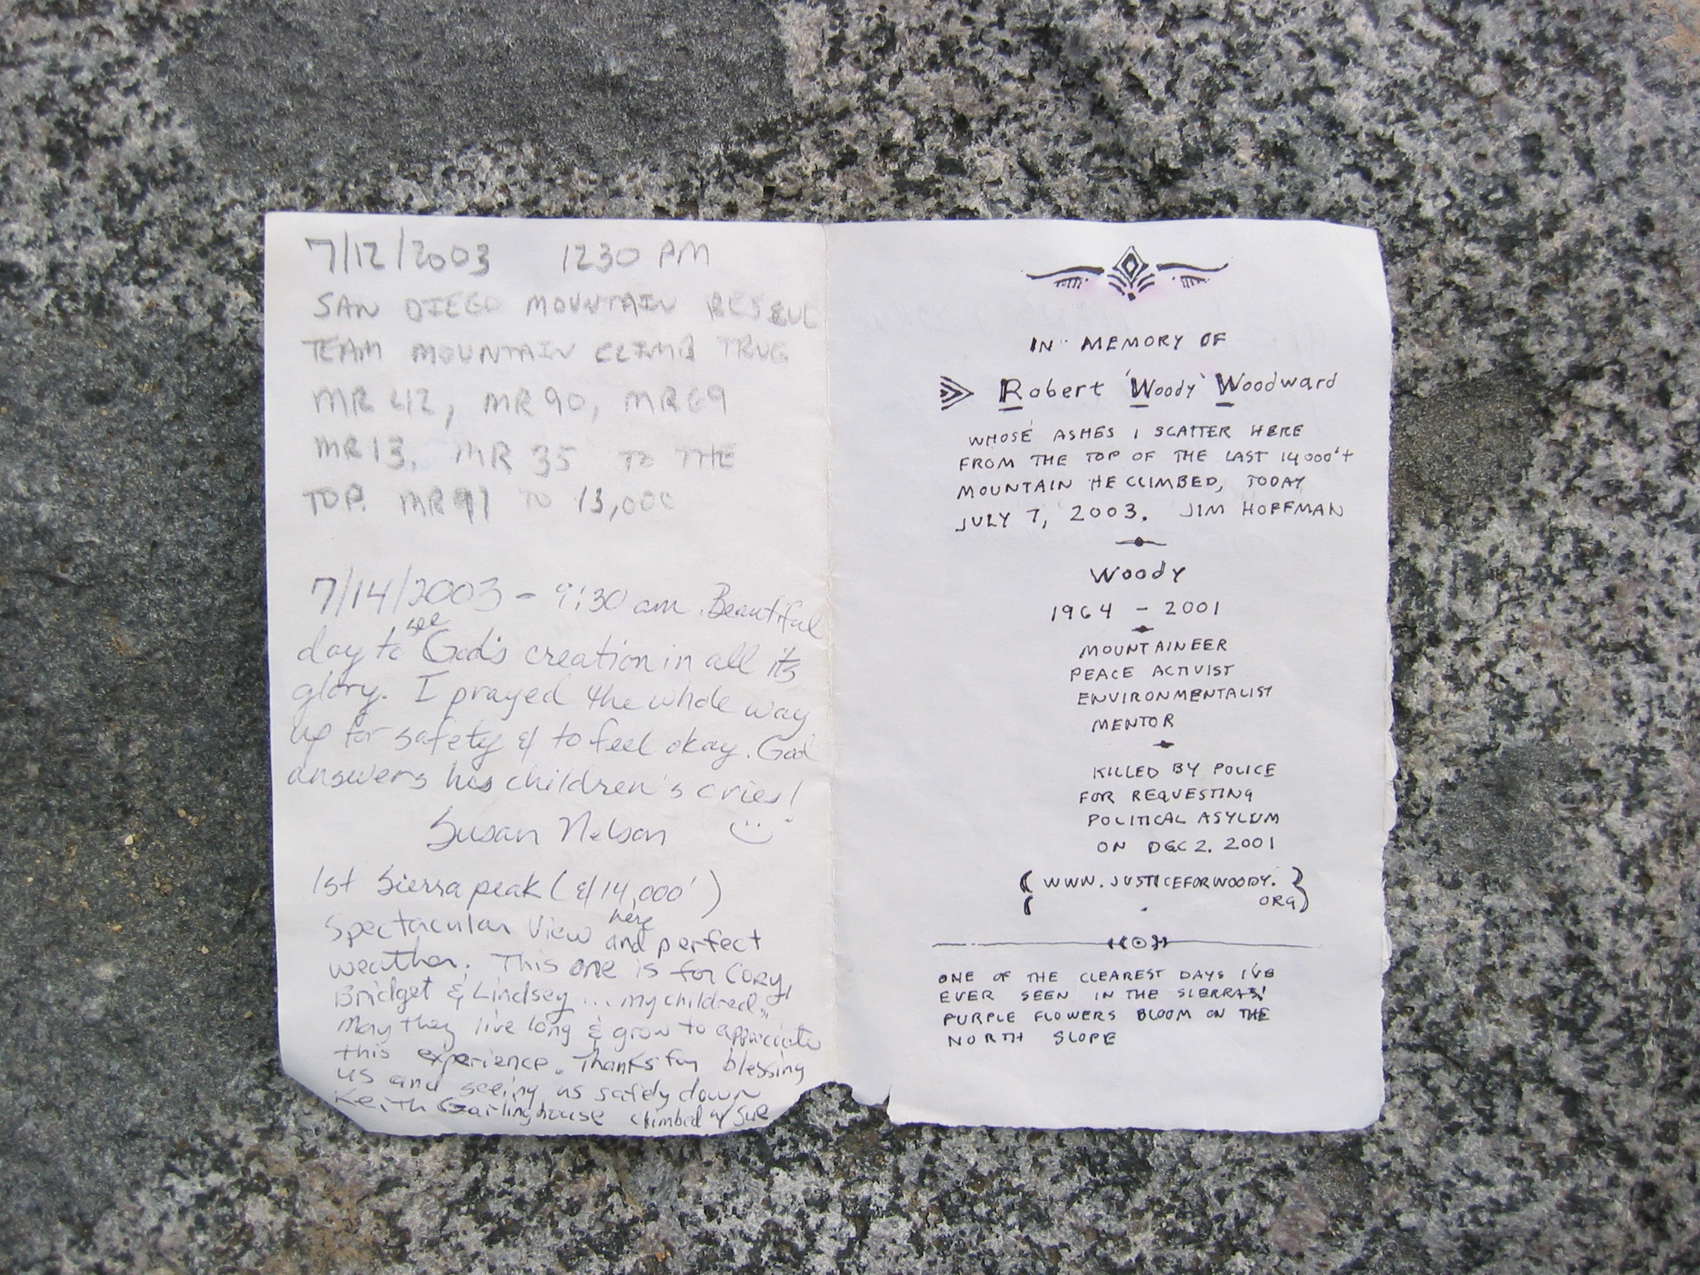 7/12/2003 1230 PM
SAN DIEGO MOUNTAIN RESCUE
TEAM MOUNTAIN CLIMB TRNG
MR 42, MR 90, MR 69
MR 13, MR 35 TO THE
TOP. MR 91 TO 13,000
7/14/2003 - 9:30 am. Beautiful
day to see God's creation in all its
glory. I prayed the whole way
up for safety & to feel okay. God
answers his children's cries!
Susan Nelson
1st Sierra peak (& 14,000')
Spectacular View here and perfect
weather. This one is for Cory,
Bridget & Lindsey... my children.
May they live long & grow to appreciate
this experience. Thanks for blessing
us and seeing us safely down
Keith Garlinghouse climbed w/ Sue
IN MEMORY OF
Robert 'Woody' Woodward
WHOSE ASHES I SCATTER HERE
FROM THE TOP OF THE LAST 14000'+
MOUNTAIN HE CLIMBED, TODAY
JULY 7, 2003. JIM HOFFMAN
Woody
1964 - 2001
MOUNTAINEER
PEACE ACTIVIST
ENVIRONMENTALIST
MENTOR
KILLED BY POLICE
FOR REQUESTING
POLITICAL ASYLUM
ON DEC 2, 2001
(WWW.JUSTICEFORWOODY.
ORG)
ONE OF THE CLEAREST DAYS I'VE
EVER SEEN IN THE SIERRAS!
PURPLE FLOWERS BLOOM ON THE
NORTH SLOPE